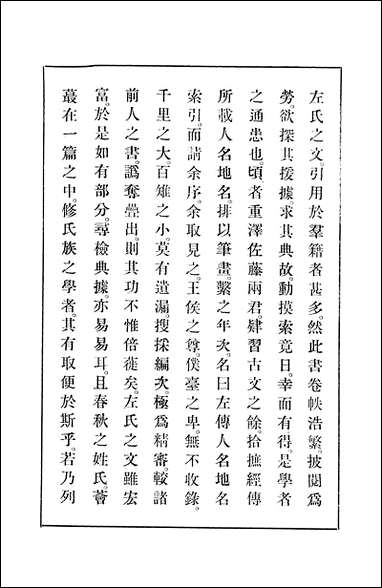 左氏之文。引用於羣籍者甚多。然此書卷帙浩繁。披閱爲
勞。欲探其援據。求其典故。動摸索竟日。幸而有得。是學者
之通患也。頃者重澤佐藤兩君。肄習古文之餘。拾摭經傳
所載人名地名。排以筆畫。繫之年次。名曰左傳人名地名
索引。而請余序。余取見之。王侯之尊。僕臺之卑。無不收錄。
千里之大。百雉之小。莫有遺漏。搜採編次。極爲精審。較諸
前人之書。譌奪疊出。則其功不惟倍蓰矣。左氏之文雖宏
富。於是如有部分。尋檢典據。亦易易耳。且春秋之姓氏。薈
蕞在一篇之中。修氏族之學者。其有取便於斯乎。若乃列